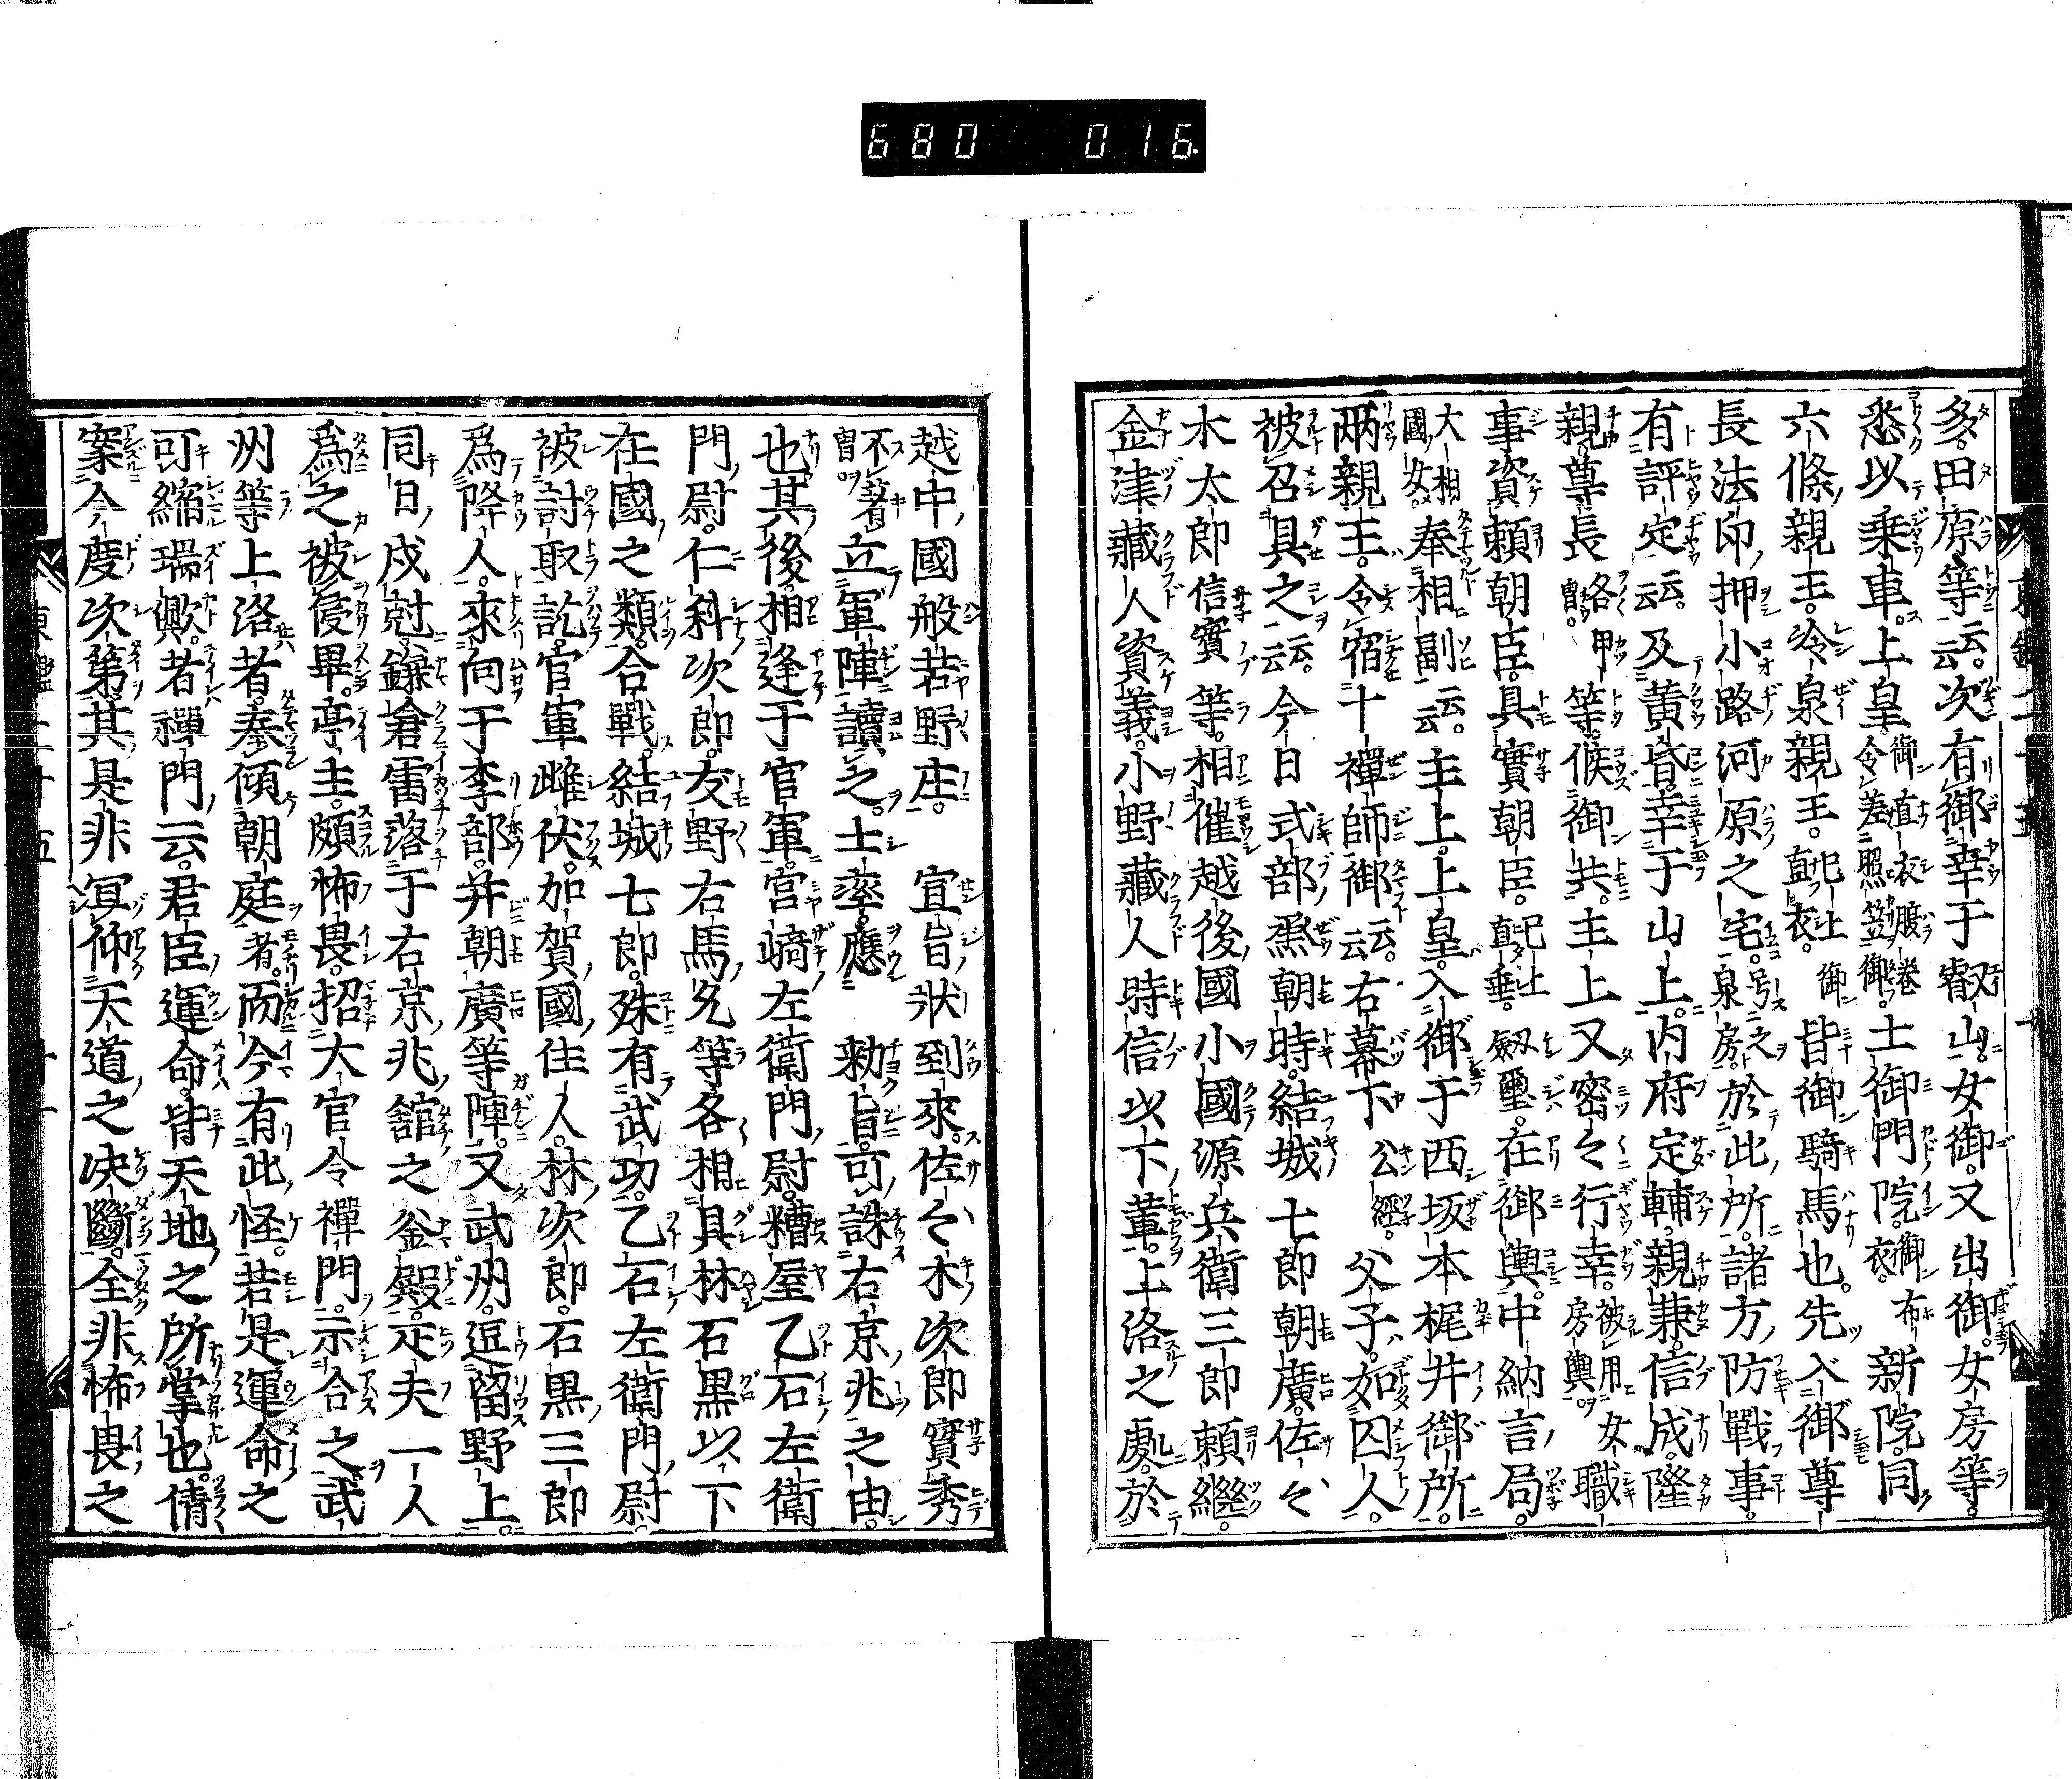 680 016
多。田原等云云。次有御幸于叡山。女御。又出御。女房等。
悉以乗車。上皇。御直衣腹巻令差照笠御。土御門院。御布衣。新院。同
六條親王。冷泉親王。已上御直衣。皆御騎馬也。先入御尊
長法印押小路河原之宅。号之泉房。於此所。諸方防戰事。
有評定云云。及黄昏。幸于山上。内府定輔。親兼。信成。隆
親。尊長各甲冑。等。候御共。主上又密々行幸。被用女房輿。職
事資頼朝臣。具實朝臣。已上直垂。劔璽。在御輿。中納言局。
大相國女。奉相副云云。主上。上皇。入御于西坂本梶井御所。
兩親王。令宿十禪師御云云。右幕下公經。父子。如囚人。
被召具之云云。今日式部烝朝時。結城七郎朝廣。佐々
木太郎信實等。相催越後國小國源兵衛三郎頼繼。
金津藏人資義。小野藏人時信以下輩。上洛之處。於
越中國般若野庄。宣旨状到來。佐々木次郎實秀
不著冑。立軍陣讀之。士率應勅旨。可誅右京兆之由。
也。其後。相逢于官軍。宮崎左衛門尉。糟屋乙石左衛
門尉。仁科次郎。友野右馬允等各相具林石黒以下
在國之類。合戰。結城七郎。殊有武功。乙石左衛門尉
被討取訖。官軍雌伏。加賀國住人。林次郎。石黒三郎
爲降人。來向于李部。并朝廣等陣。又武州。逗留野上。
同日戌尅。鎌倉雷落于右京兆舘之釜殿。疋夫一人
爲之被侵畢。亭主。頗怖畏。招大官令禪門。示合之武
州等上洛者。奉傾朝庭者。而今有此怪。若是運命之
可縮瑞歟。者禪門云。君臣運命。皆天地之所掌也。倩
案今度次第。其是非冝仰天道之决斷。全非怖畏之
東鑑二十五